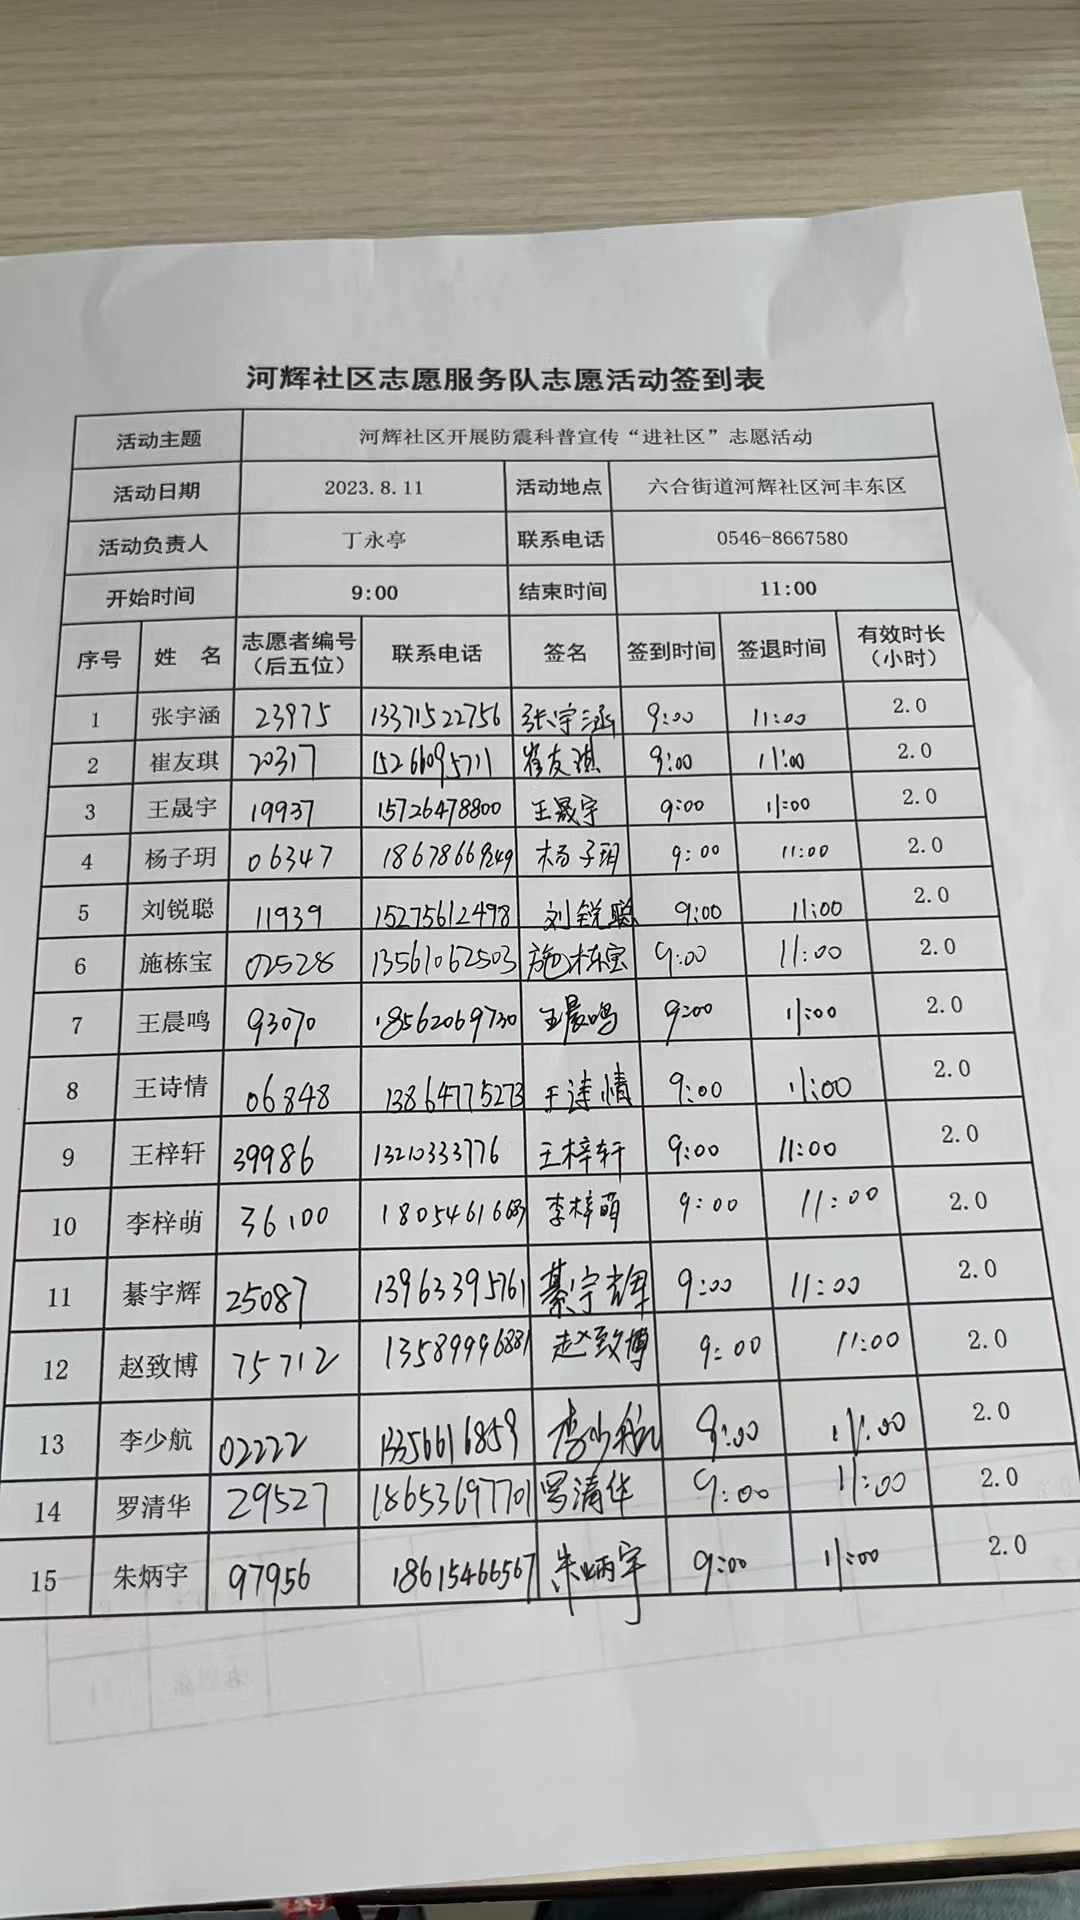 河辉社区志愿服务队志愿活动签到表
活动主题 河辉社区开展防震科普宣传“进社区”志愿活动
活动日期 2023.8.11 活动地点 六合街道河辉社区河丰东区
活动负责人 丁永亭 联系电话 0546-8667580
开始时间 9:00 结束时间 11:00
序号 姓 名 志愿者编号（后五位） 联系电话 签名 签到时间 签退时间 有效时长（小时）
1 张宇涵 23975 13371522756 张宇涵 9:00 11:00 2.0
2 崔友琪 20317 15266095711 崔友琪 9:00 11:00 2.0
3 王晟宇 19937 15726478800 王晟宇 9:00 11:00 2.0
4 杨子玥 06347 18678669249 杨子玥 9:00 11:00 2.0
5 刘锐聪 11939 15275612498 刘锐聪 9:00 11:00 2.0
6 施栋宝 02528 13561062503 施栋宝 9:00 11:00 2.0
7 王晨鸣 93070 18562069730 王晨鸣 9:00 11:00 2.0
8 王诗情 06848 13864775273 王诗情 9:00 11:00 2.0
9 王梓轩 39986 13210333776 王梓轩 9:00 11:00 2.0
10 李梓萌 36100 李梓萌 9:00 11:00 2.0
11 綦宇辉 25087 13963395761 綦宇辉 9:00 11:00 2.0
12 赵致博 75712 13589996881 赵致博 9:00 11:00 2.0
13 李少航 02222 13356616859 李少航 9:00 11:00 2.0
14 罗清华 29527 18653697701 罗清华 9:00 11:00 2.0
15 朱炳宇 97956 18615466567 朱炳宇 9:00 11:00 2.0